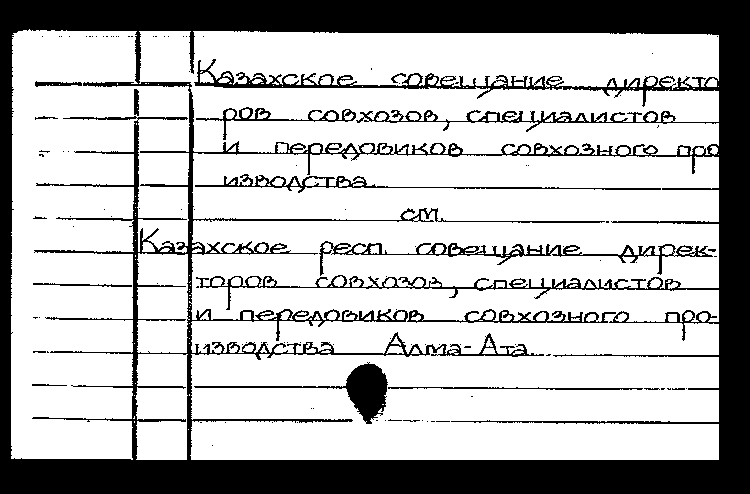 Казахское совещание директо
ров совхозов, специалистов
и передовиков совхозного про
изводства.
см.
Казахское респ. совещание дирек-
торов совхозов, специалистов
и передовиков совхозного про-
изводства Алма-Ата.